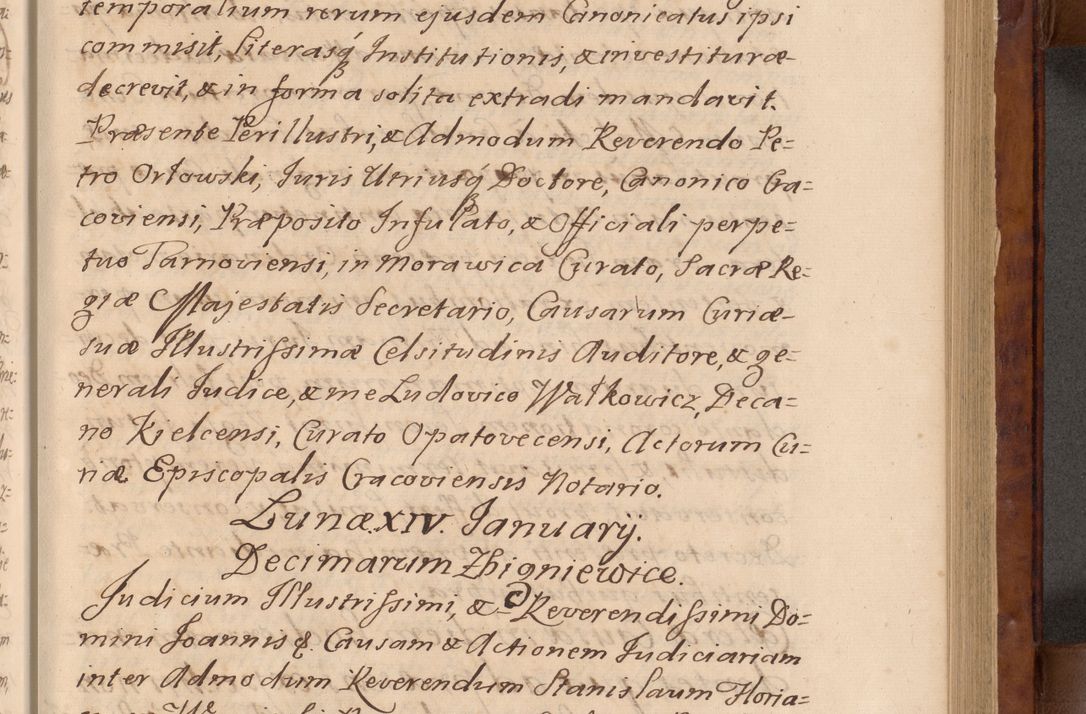 temporalium rerum ejusdem Canonicatus ipsi
commisit, literasq́ Institutionis, & investituræ
decrevit, & in forma solita extradi mandavit.
Præsente Perillustri, & Admodum Reverendo Pe=
tro Orłowski, Juris Utriusq́ Doctore, Canonico Cra=
coviensi, Præposito Infulato, & Officiali perpe=
tuo Tarnoviensi, in Morawica Curato, Sacræ Re=
giæ Majestatis Secretario, Causarum Curiæ
suæ Illustrissimæ Celsitudinis Auditore, & ge=
nerali Judice, & me Ludovico Wałkowicz, Deca=
no Kielcensi, Curato Opatovecensi, Actorum Cu=
riæ Episcopalis Cracoviensis Notario.
Lunæ XIV. Januarÿ.
Decimarum Zbigniewice.
Judicium Illustrissimi, & Reverendissimi Do=
mini Joannis &. Causam & Actionem Judiciariam
inter Admodum Reverendum Stanislaum Floria=